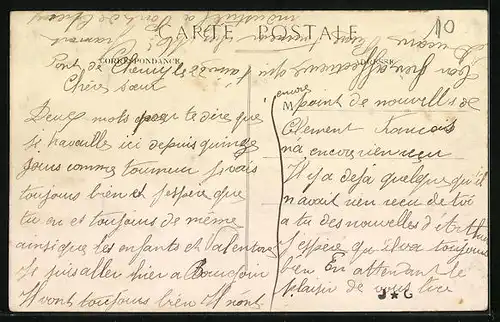 CARTE POSTALE
CORRESPONDANCE
ADRESSE
10
Pont de Cheruy le 22
Chère sœur
Deux mots pour te dire que
je travaille ici depuis quinze
jours comme tourneur je vais
toujours bien et j'espere que
tu es toujours de même
ainsi que les enfants et Valentine
Je puis aller hier a Bourgoin
Il vont toujours bien Il n'ont
encore
point de nouvelles de
Clement Francois
n'a encore rien reçu
Il y a deja quelque qu'il
n'avait rien recu de toi
a tu des nouvelles d'Arthur
J'espère qu'il va toujours
bien En attendant le
plaisir de vous lire
J★G